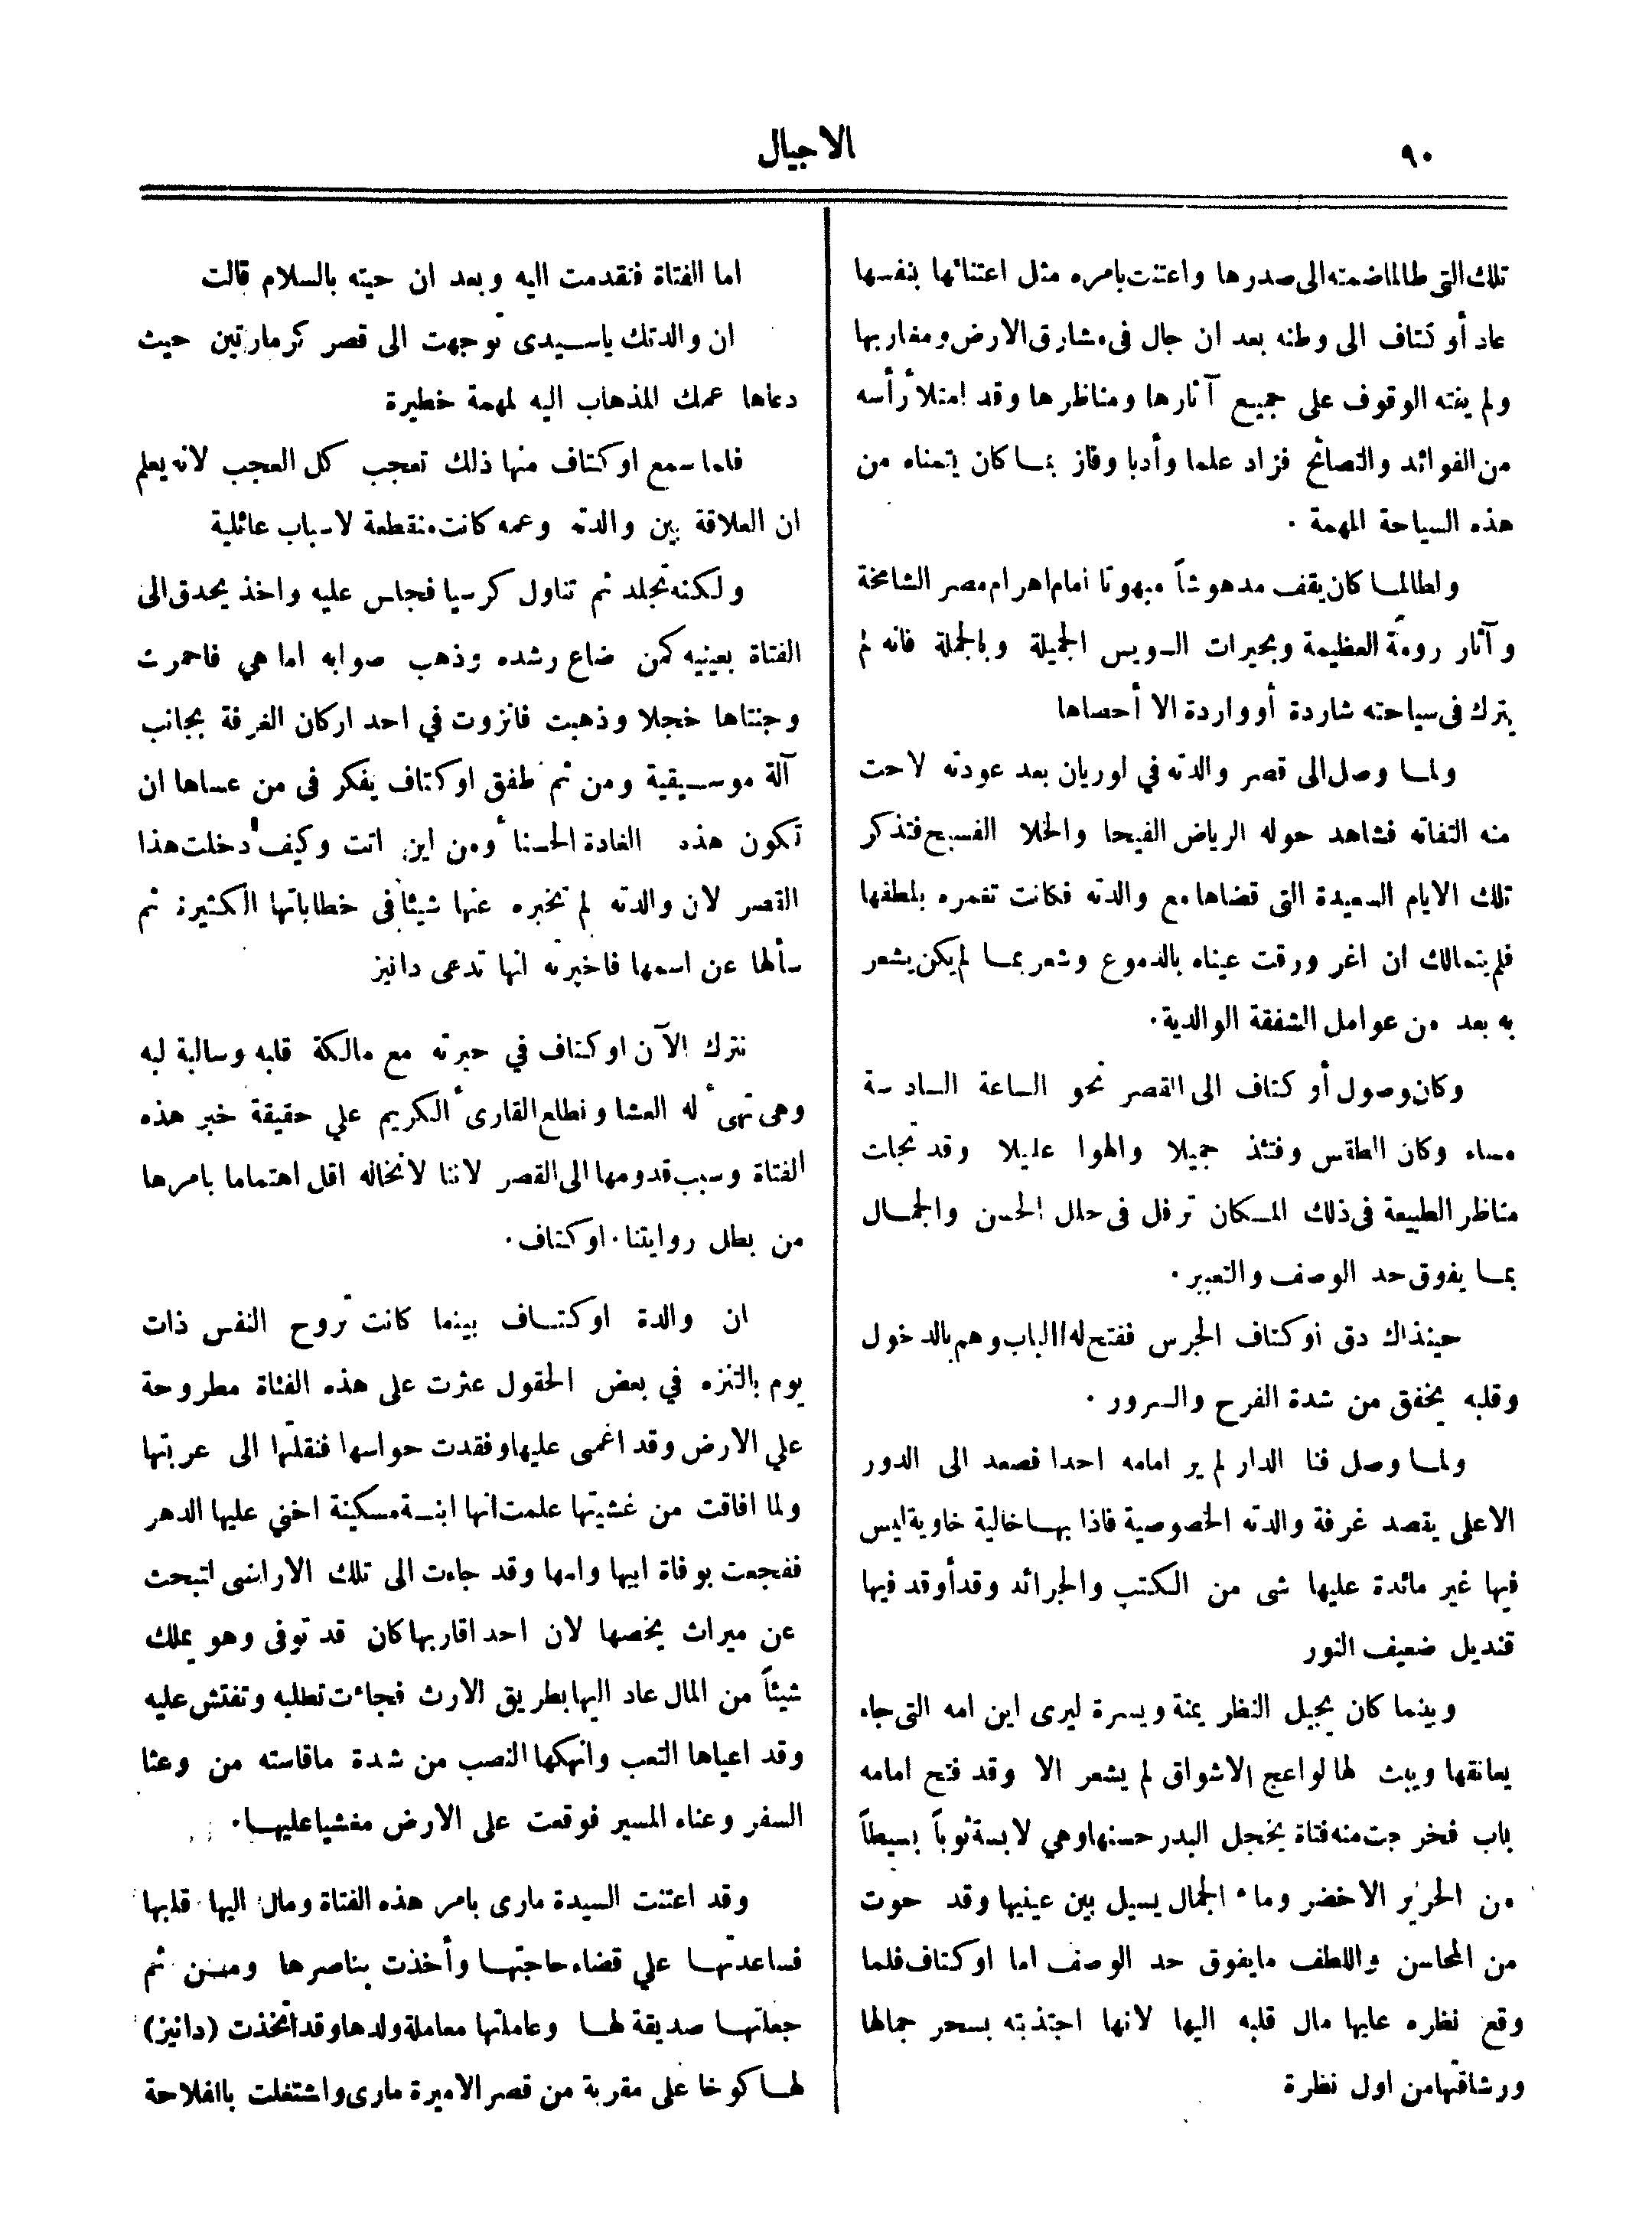 ٩٠
الاجيال
تلك التى طالما ضمته الى صدرها واعتنت بامره مثل اعتنائها بنفسها
عاد أوكتاف الى وطنه بعد ان جال فى مشارق الارض ومغاربها
ولم يفته الوقوف على جميع آثارها ومناظرها وقد امتلأ رأسه
من الفوائد والنصائح فزاد علما وأدبا وفاز بما كان يتمناه من
هذه السياحة المهمة .
ولطالما كان يقف مدهوشاً مبهوتا امام اهرام مصر الشامخة
وآثار رومة العظيمة وبحيرات السويس الجميلة وبالجملة فانه لم
يترك فى سياحته شاردة أو واردة الا أحصاها
ولما وصل الى قصر والدته في لوريان بعد عودته لاحت
منه التفاته فشاهد حوله الرياض الفيحا والخلا الفسيح فتذكر
تلك الايام السعيدة التى قضاها مع والدته فكانت تغمره بلطفها
فلم يتمالك ان اغر ورقت عيناه بالدموع وشعر بما لم يكن يشعر
به بعد من عوامل الشفقة الوالدية.
وكان وصول أوكتاف الى القصر نحو الساعة السادسة
مساء وكان الطقس وقتئذ جميلا والهوا عليلا وقد تجلت
مناظر الطبيعة فى ذلك المكان ترفل فى حلل الحسن والجمال
بما يفوق حد الوصف والتعبير .
حينذاك دق أوكتاف الجرس ففتح له الباب وهم بالدخول
وقلبه يخفق من شدة الفرح والسرور .
ولما وصل فنا الدار لم ير امامه احدا فصعد الى الدور
الاعلى يقصد غرفة والدته الخصوصية فاذا بها خالية خاوية ليس
فيها غير مائدة عليها شى من الكتب والجرائد وقد أوقد فيها
قنديل ضعيف النور
وبينما كان يجيل النظر يمنة ويسرة ليرى اين امه التى جاء
يعانقها ويبث لها لواعج الاشواق لم يشعر الا وقد فتح امامه
باب فخرجت منه فتاة يخجل البدر حسنها وهي لابسة ثوباً بسيطاً
من الحرير الاخضر وماء الجمال يسيل بين عينيها وقد حوت
من المحاسن واللطف ما يفوق حد الوصف اما اوكتاف فلما
وقع نظره عليها مال قلبه اليها لانها اجتذبته بسحر جمالها
ورشاقتها من اول نظرة
اما الفتاة فتقدمت اليه وبعد ان حيته بالسلام قالت
ان والدتك ياسيدى توجهت الى قصر كرمارتين حيث
دعاها عمك للذهاب اليه لمهمة خطيرة
فلما سمع اوكتاف منها ذلك تعجب كل العجب لانه يعلم
ان العلاقة بين والدته وعمه كانت منقطعة لاسباب عائلية
ولكنه تجلد ثم تناول كرسيا فجلس عليه واخذ يحدق الى
الفتاة بعينيه كمن ضاع رشده وذهب صوابه اما هي فاحمرت
وجنتاها خجلا وذهبت فانزوت في احد اركان الغرفة بجانب
آلة موسيقية ومن ثم طفق اوكتاف يفكر فى من عساها ان
تكون هذه الغادة الحسنأ ومن اين اتت وكيف دخلت هذا
القصر لان والدته لم تخبره عنها شيئاً فى خطاباتها الكثيرة ثم
سألها عن اسمها فاخبرته انها تدعى دانيز
نترك الآن اوكتاف في حيرته مع مالكة قلبه وسالبة لبه
وهى تهىء له العشا ونطلع القارىء الكريم علي حقيقة خبر هذه
الفتاة وسبب قدومها الى القصر لاننا لانخاله اقل اهتماما بامرها
من بطل روايتنا . اوكتاف .
ان والدة اوكتاف بينما كانت تروح النفس ذات
يوم بالتنزه في بعض الحقول عثرت على هذه الفتاة مطروحة
علي الارض وقد اغمى عليها وفقدت حواسها فنقلتها الى عربتها
ولما افاقت من غشيتها علمت انها ابنة مسكينة اخني عليها الدهر
ففجعت بوفاة ابيها وامها وقد جاءت الى تلك الاراضى لتبحث
عن ميراث يخصها لان احد اقاربها كان قد توفى وهو يملك
شيئاً من المال عاد اليها بطريق الارث فجاءت تطلبه وتفتش عليه
وقد اعياها التعب وانهكها النصب من شدة ماقاسته من وعثا
السفر وعناء المسير فوقعت على الارض مغشيا عليها.
وقد اعتنت السيدة مارى بامر هذه الفتاة ومال اليها قلبها
فساعدتها علي قضاء حاجتها وأخذت بناصرها ومن ثم
جعلتها صديقة لها وعاملتها معاملة ولدها وقد اتخذت (دانيز)
لها كوخا على مقربة من قصر الاميرة مارى واشتغلت بالفلاحة